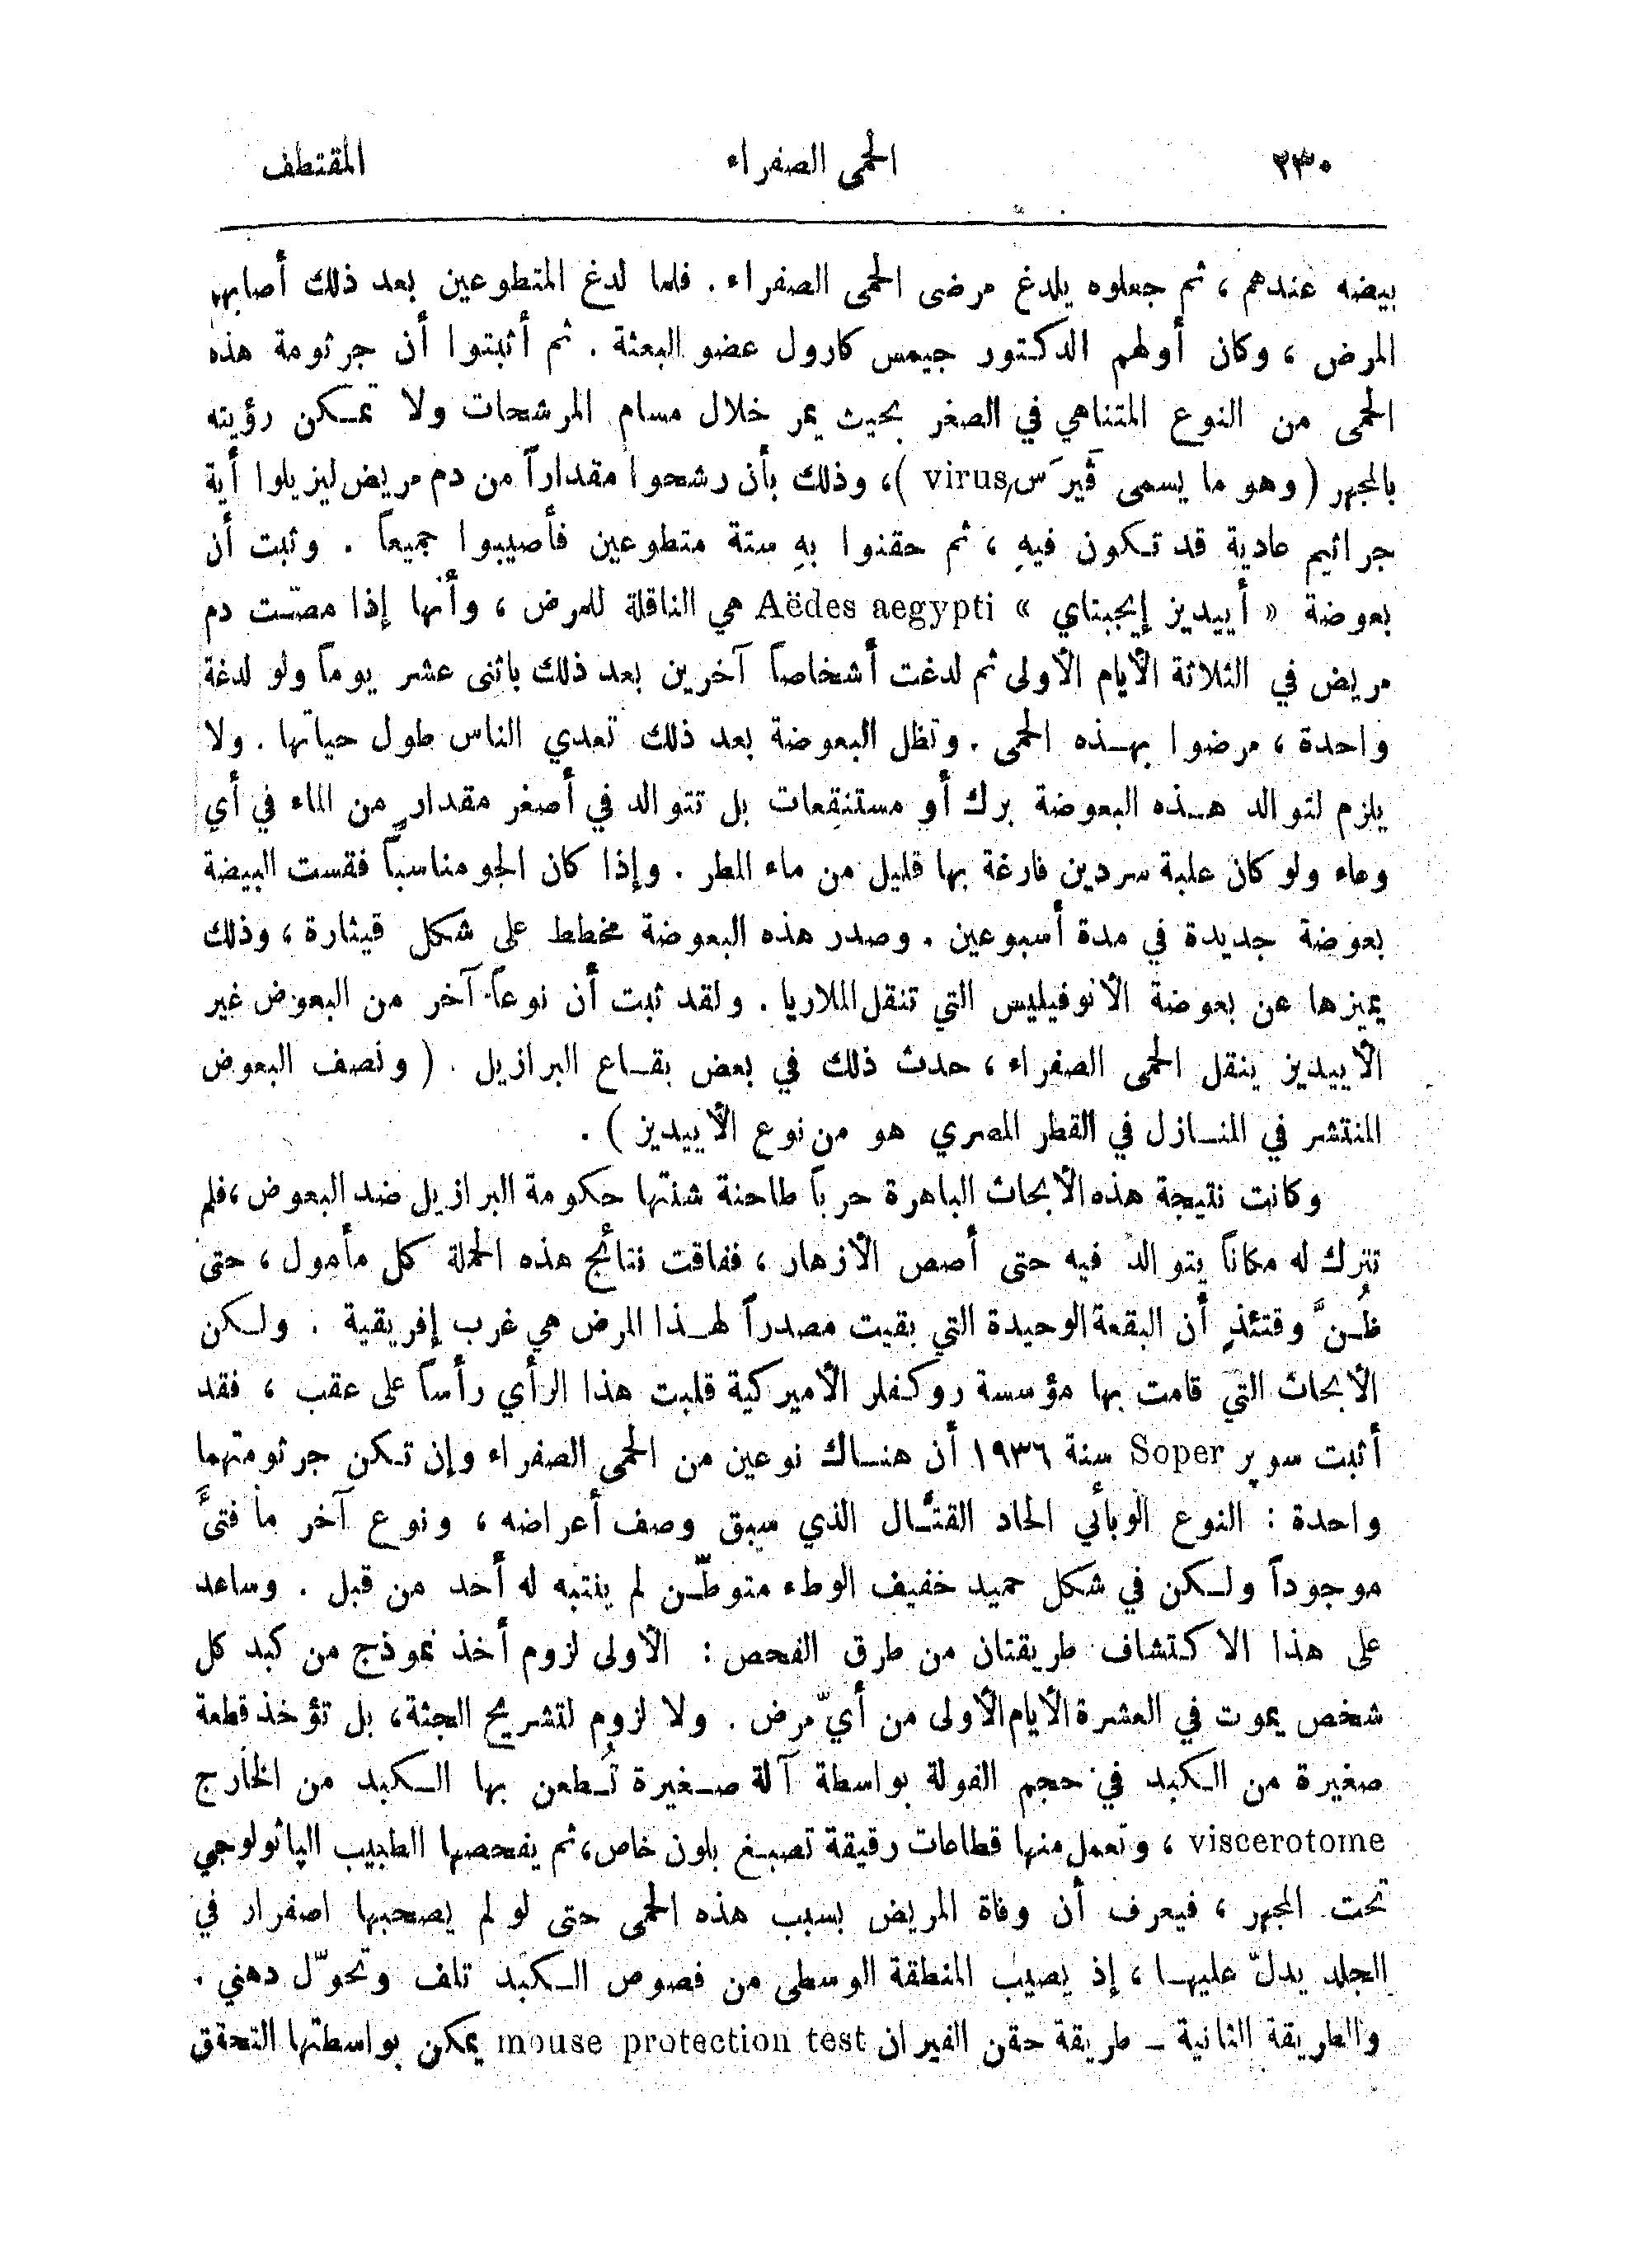 ٢٣٠ الحمى الصفراء المقتطف
بيضه عندهم ، ثم جعلوه يلدغ مرضى الحمى الصفراء . فلما لدغ المتطوعين بعد ذلك أصابهم
المرض ، وكان أولهم الدكتور جيمس كارول عضو البعثة . ثم أثبتوا أن جرثومة هذه
الحمى من النوع المتناهي في الصغر بحيث يمر خلال مسام المرشحات ولا تمكن رؤيته
بالمجهر ( وهو ما يسمى ڤيرَس virus )، وذلك بأن رشحوا مقداراً من دم مريض ليزيلوا أية
جراثيم عادية قد تكون فيهِ ، ثم حقنوا بهِ ستة متطوعين فأصيبوا جميعاً . وثبت أن
بعوضة « أييديز إيجبتاي » Aëdes aegypti هي الناقلة للمرض ، وأنها إذا مصّت دم
مريض في الثلاثة الأيام الأولى ثم لدغت أشخاصاً آخرين بعد ذلك باثنى عشر يوماً ولو لدغة
واحدة ، مرضوا بهذه الحمى . وتظل البعوضة بعد ذلك تعدي الناس طول حياتها . ولا
يلزم لتوالد هذه البعوضة برك أو مستنقعات بل تتوالد في أصغر مقدارٍ من الماء في أي
وعاء ولو كان علبة سردين فارغة بها قليل من ماء المطر . وإذا كان الجو مناسباً فقست البيضة
بعوضة جديدة في مدة أسبوعين . وصدر هذه البعوضة مخطط على شكل قيثارة ، وذلك
يميزها عن بعوضة الأنوفيليس التي تنقل الملاريا . ولقد ثبت أن نوعاً آخر من البعوض غير
الأييديز ينقل الحمى الصفراء ، حدث ذلك في بعض بقاع البرازيل . ( ونصف البعوض
المنتشر في المنازل في القطر المصري هو من نوع الأييديز ) .
وكانت نتيجة هذه الأبحاث الباهرة حرباً طاحنة شنتها حكومة البرازيل ضد البعوض ، فلم
تترك له مكاناً يتوالد فيه حتى أصص الأزهار ، ففاقت نتائج هذه الحملة كل مأمول ، حتى
ظُنَّ وقتئذٍ أن البقعة الوحيدة التي بقيت مصدراً لهذا المرض هي غرب إفريقية . ولكن
الأبحاث التي قامت بها مؤسسة روكفلر الأميركية قلبت هذا الرأي رأساً على عقب ، فقد
أثبت سوپر Soper سنة ١٩٣٦ أن هناك نوعين من الحمى الصفراء وإن تكن جرثومتهما
واحدة : النوع الوبائي الحاد القتَّال الذي سبق وصف أعراضه ، ونوع آخر ما فتئَ
موجوداً ولكن في شكل حميد خفيف الوطء متوطّن لم ينتبه له أحد من قبل . وساعد
على هذا الاكتشاف طريقتان من طرق الفحص : الأولى لزوم أخذ نموذج من كبد كل
شخص يموت في العشرة الأيام الأولى من أيّ مرض . ولا لزوم لتشريح الجثة، بل تؤخذ قطعة
صغيرة من الكبد في حجم الفولة بواسطة آلة صغيرة تُطعن بها الكبد من الخارج
viscerotome ، وتعمل منها قطاعات رقيقة تصبغ بلون خاص، ثم يفحصها الطبيب الپاثولوجي
تحت المجهر ، فيعرف أن وفاة المريض بسبب هذه الحمى حتى لو لم يصحبها اصفرار في
الجلد يدلّ عليها ، إذ يصيب المنطقة الوسطى من فصوص الكبد تلف وتحوّل دهني .
والطريقة الثانية ــ طريقة حقن الفيران mouse protection test يمكن بواسطتها التحقق